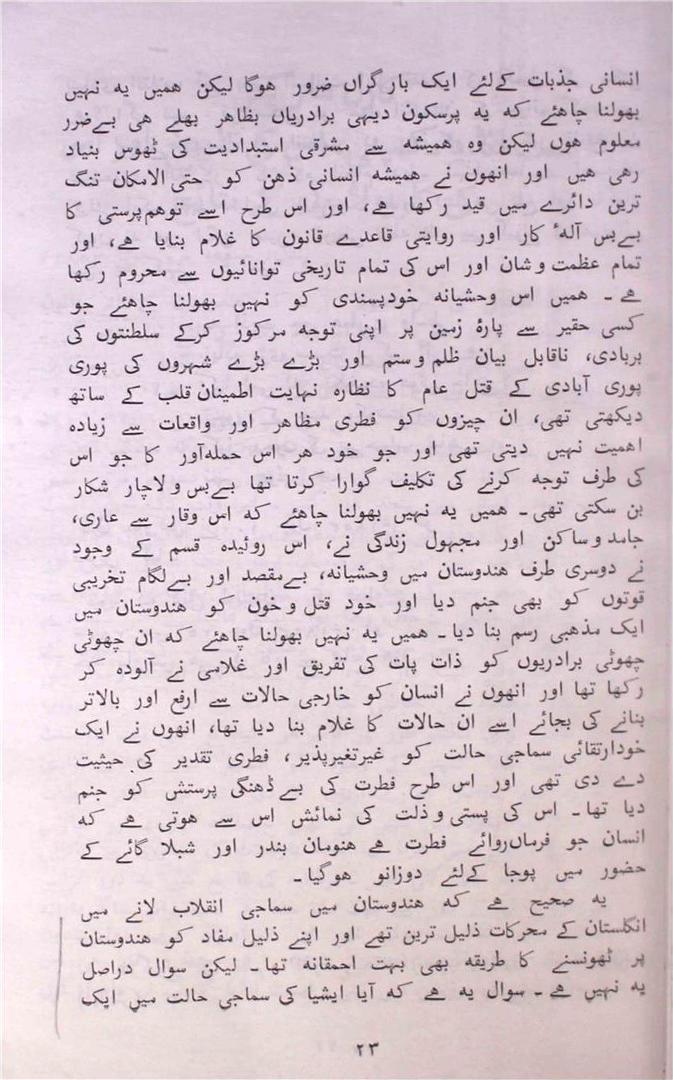 انسانی جذبات کےلئے ایک بار گراں ضرور ہوگا لیکن ہمیں یہ نہیں
بھولنا چاہئے کہ یہ پرسکون دیہی برادریاں بظاہر بھلے ہی بےضرر
معلوم ہوں لیکن وہ ہمیشہ سے مشرقی استبدادیت کی ٹھوس بنیاد
رہی ہیں اور انھوں نے ہمیشہ انسانی ذہن کو حتی الامکان تنگ
ترین دائرے میں قید رکھا ہے، اور اس طرح اسے توہم پرستی کا
بےبس آلۂ کار اور روایتی قاعدے قانون کا غلام بنایا ہے، اور
تمام عظمت و شان اور اس کی تمام تاریخی توانائیوں سے محروم رکھا
ہے ۔ ہمیں اس وحشیانہ خودپسندی کو نہیں بھولنا چاہئے جو
کسی حقیر سے پارۂ زمین پر اپنی توجہ مرکوز کرکے سلطنتوں کی
بربادی، ناقابل بیان ظلم و ستم اور بڑے بڑے شہروں کی پوری
پوری آبادی کے قتل عام کا نظارہ نہایت اطمینان قلب کے ساتھ
دیکھتی تھی، ان چیزوں کو فطری مظاہر اور واقعات سے زیادہ
اہمیت نہیں دیتی تھی اور جو خود ہر اس حملہآور کا جو اس
کی طرف توجہ کرنے کی تکلیف گوارا کرتا تھا بےبس و لاچار شکار
بن سکتی تھی ۔ ہمیں یہ نہیں بھولنا چاہئے کہ اس وقار سے عاری،
جامد و ساکن اور مجہول زندگی نے، اس روئیدہ قسم کے وجود
نے دوسری طرف ہندوستان میں وحشیانہ، بےمقصد اور بےلگام تخریبی
قوتوں کو بھی جنم دیا اور خود قتل و خون کو ہندوستان میں
ایک مذہبی رسم بنا دیا ۔ ہمیں یہ نہیں بھولنا چاہئے کہ ان چھوٹی
چھوٹی برادریوں کو ذات پات کی تفریق اور غلامی نے آلودہ کر
رکھا تھا اور انھوں نے انسان کو خارجی حالات سے ارفع اور بالاتر
بنانے کی بجائے اسے ان حالات کا غلام بنا دیا تھا، انھوں نے ایک
خودارتقائی سماجی حالت کو غیرتغیرپذیر، فطری تقدیر کی حیثیت
دے دی تھی اور اس طرح فطرت کی بےڈھنگی پرستش کو جنم
دیا تھا ۔ اس کی پستی و ذلت کی نمائش اس سے ہوتی ہے کہ
انسان جو فرماںروائے فطرت ہے ہنومان بندر اور شبلا گائے کے
حضور میں پوجا کےلئے دوزانو ہوگیا ۔
یہ صحیح ہے کہ ہندوستان میں سماجی انقلاب لانے میں
انگلستان کے محرکات ذلیل ترین تھے اور اپنے ذلیل مفاد کو ہندوستان
پر ٹھونسنے کا طریقہ بھی بہت احمقانہ تھا ۔ لیکن سوال دراصل
یہ نہیں ہے ۔ سوال یہ ہے کہ آیا ایشیا کی سماجی حالت میں ایک
۲۳